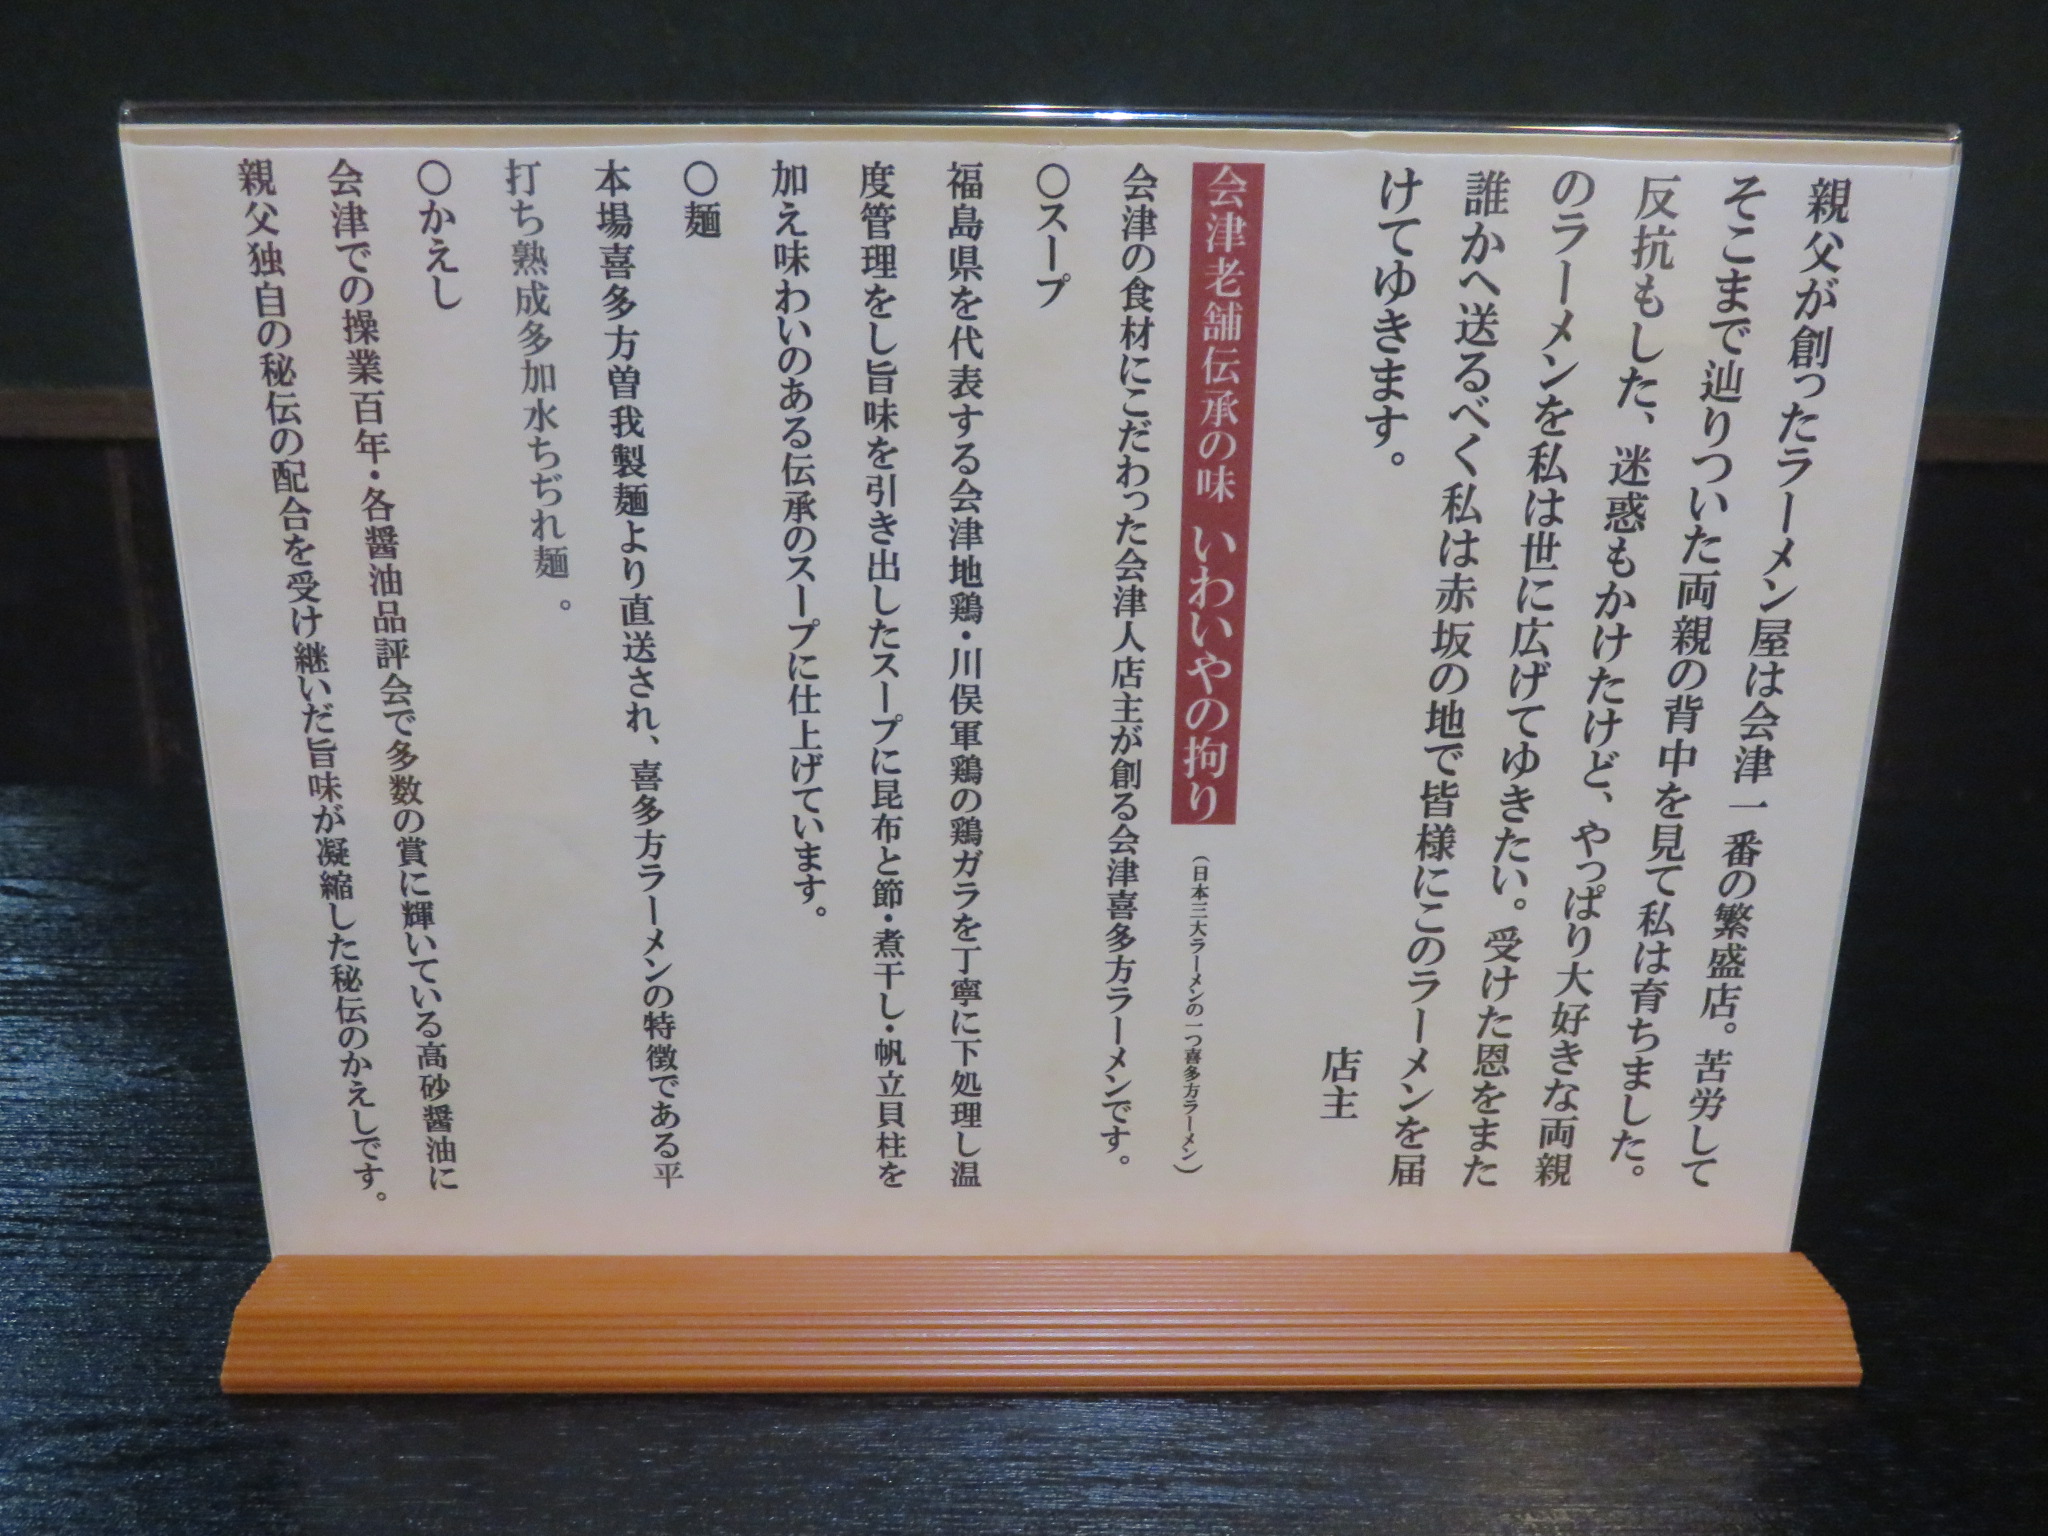 親父が創ったラーメン屋は会津一番の繁盛店。苦労して
そこまで辿りついた両親の背中を見て私は育ちました。
反抗もした、迷惑もかけたけど、やっぱり大好きな両親
のラーメンを私は世に広げてゆきたい。受けた恩をまた
誰かへ送るべく私は赤坂の地で皆様にこのラーメンを届
けてゆきます。
店主
会津老舗伝承の味 いわいやの拘り (日本三大ラーメンの一つ喜多方ラーメン)
会津の食材にこだわった会津人店主が創る会津喜多方ラーメンです。
〇スープ
福島県を代表する会津地鶏・川俣軍鶏の鶏ガラを丁寧に下処理し温
度管理をし旨味を引き出したスープに昆布と節・煮干し・帆立貝柱を
加え味わいのある伝承のスープに仕上げています。
〇麺
本場喜多方曽我製麺より直送され、喜多方ラーメンの特徴である平
打ち熟成多加水ちぢれ麺 。
〇かえし
会津での操業百年・各醤油品評会で多数の賞に輝いている高砂醤油に
親父独自の秘伝の配合を受け継いだ旨味が凝縮した秘伝のかえしです。